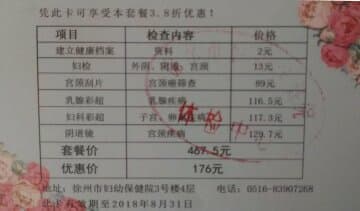 凭此卡可享受本套餐3.8折优惠!
项目 检查内容 价格
建立健康档案 资料 2元
妇检 外阴、阴道、宫颈 13元
宫颈刮片 宫颈癌筛查 89元
乳腺彩超 乳腺疾病 116.5元
妇科彩超 子宫、卵巢疾病 117.3元
阴道镜 宫颈疾病 129.7元
套餐价 467.5元
优惠价 176元
地址:徐州市妇幼保健院3号楼4层 电话:0516-83907268
此卡有效期至2018年8月31日
体检中心